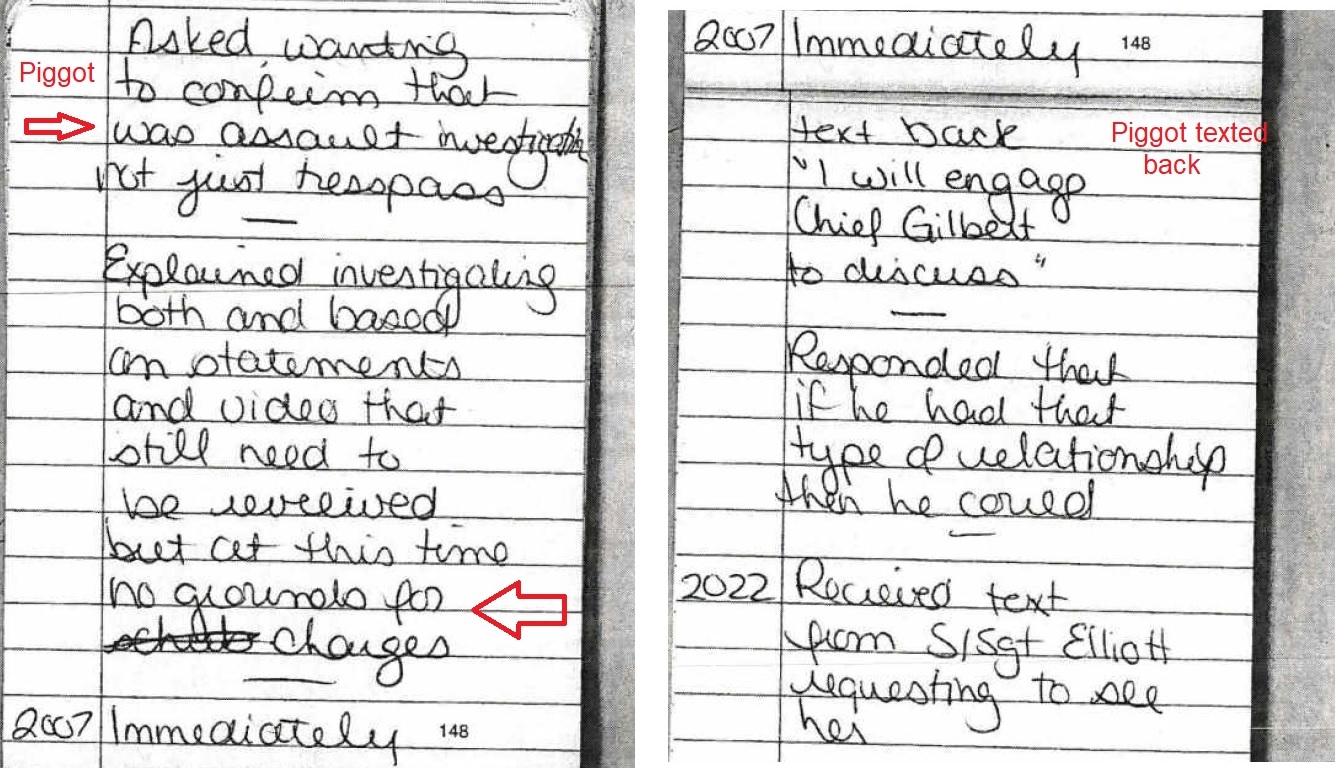 Asked wanting
Piggot
to confirm that
was assault investigation
not just tresspass
Explained investigating
both and based
on statements
and video that
still need to
be reveiwed
but at this time
no grounds for
charges
2007 Immediately 148
2007 Immediately 148
text back
Piggot texted
back
"I will engage
Chief Gilbert
to discuss"
Responded that
if he had that
type of relationship
then he could
2022 Recieved text
from S/Sgt Elliott
requesting to see
her